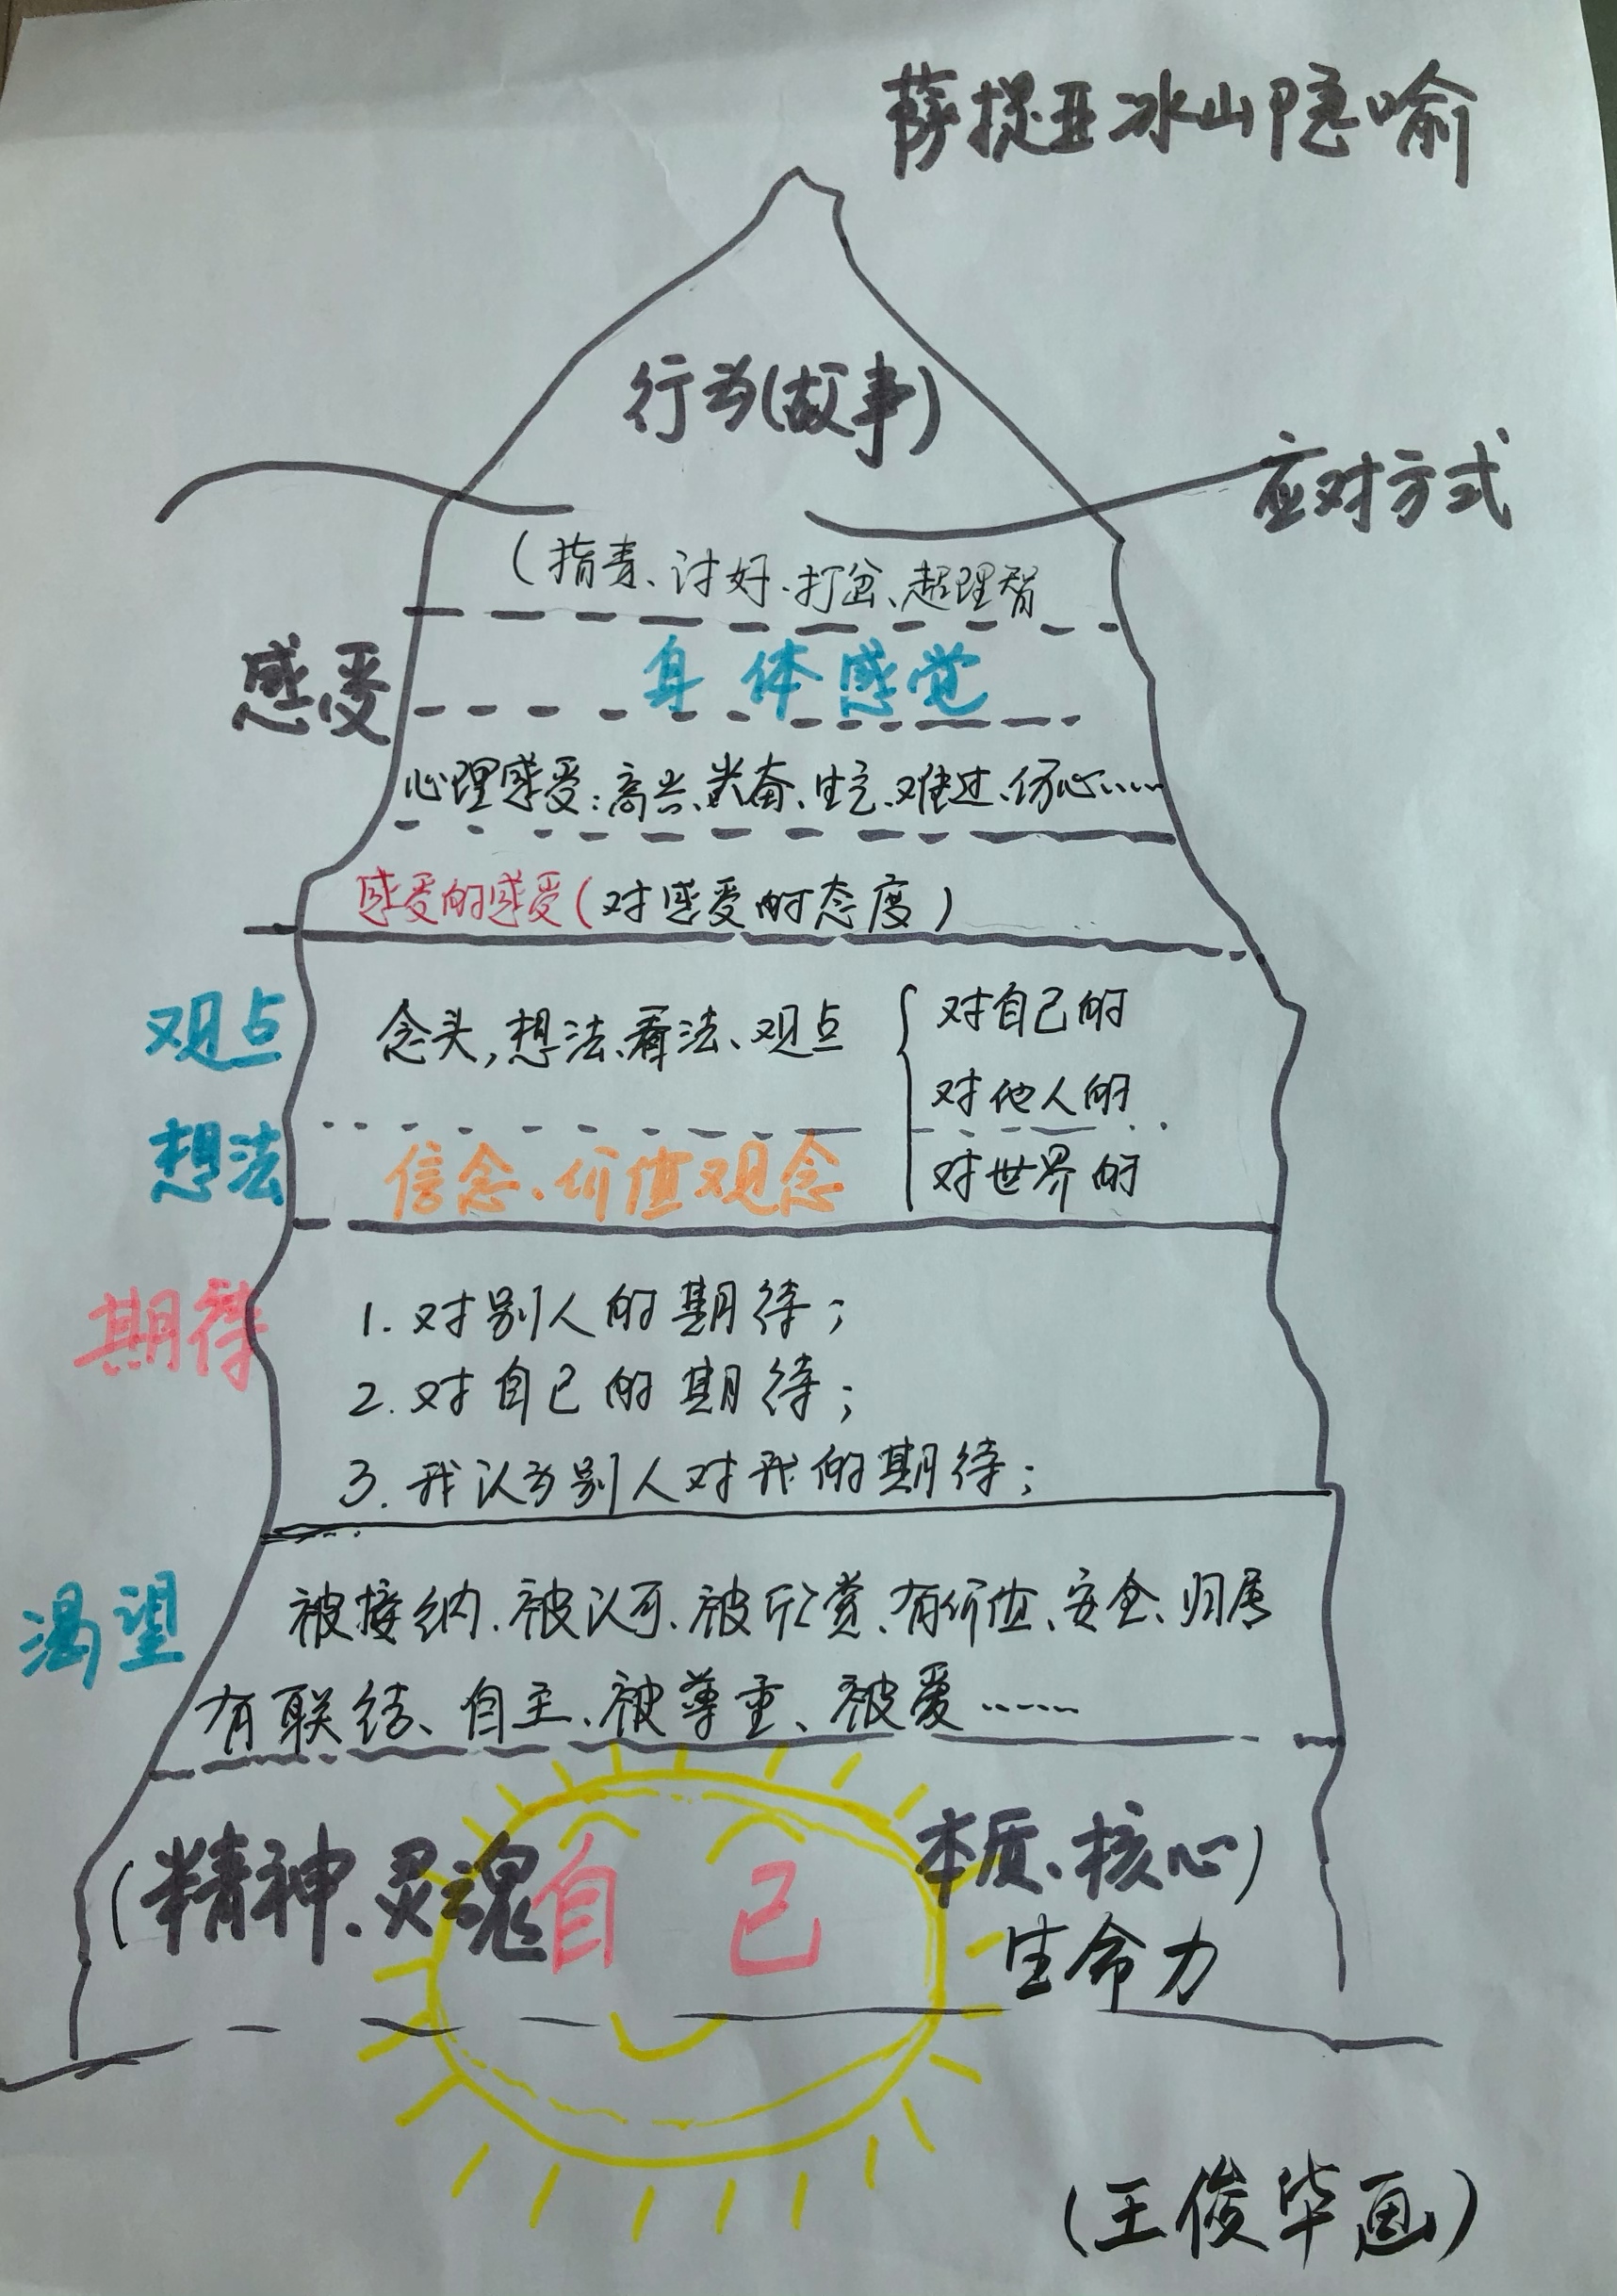 萨提亚冰山隐喻
行为(故事)
应对方式
(指责、讨好、打岔、超理智
感受
身体感觉
心理感受：高兴、兴奋、生气、难过、伤心……
感受的感受(对感受的态度)
观点
念头，想法、看法、观点
对自己的
对他人的
想法
信念、价值观念
对世界的
期待
1. 对别人的期待；
2. 对自己的期待；
3. 我认为别人对我的期待；
渴望
被接纳、被认可、被欣赏、有价值、安全、归属
有联结、自主、被尊重、被爱……
(精神、灵魂 自己 本质、核心)
生命力
(王俊华画)